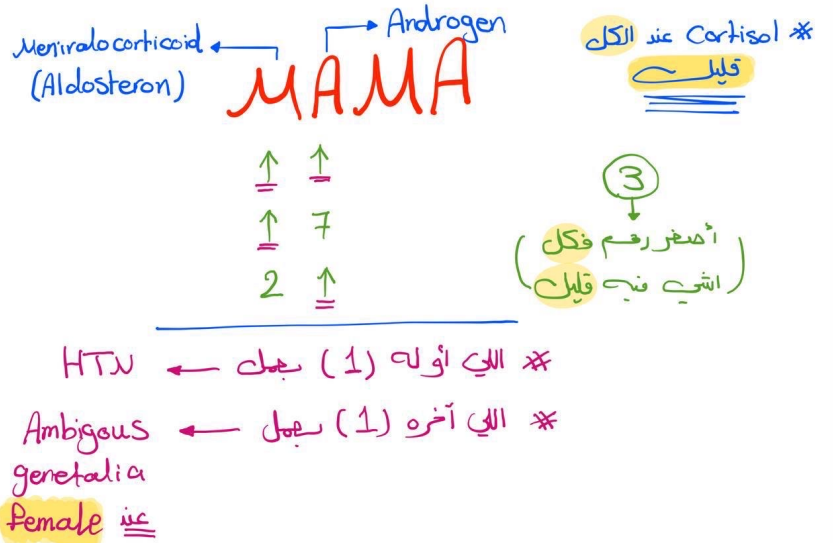 Meniralocorticoid
(Aldosteron)
Androgen
MAMA
* Cortisol عند الكل
قليل
↑ ↑
↑ 7
2 ↑
3
(أصغر رقم فكل
اشي فيه قليل)
* اللي أوله (1) بعمل ← HTN
* اللي آخره (1) بعمل ← Ambigous
genetalia
عند female